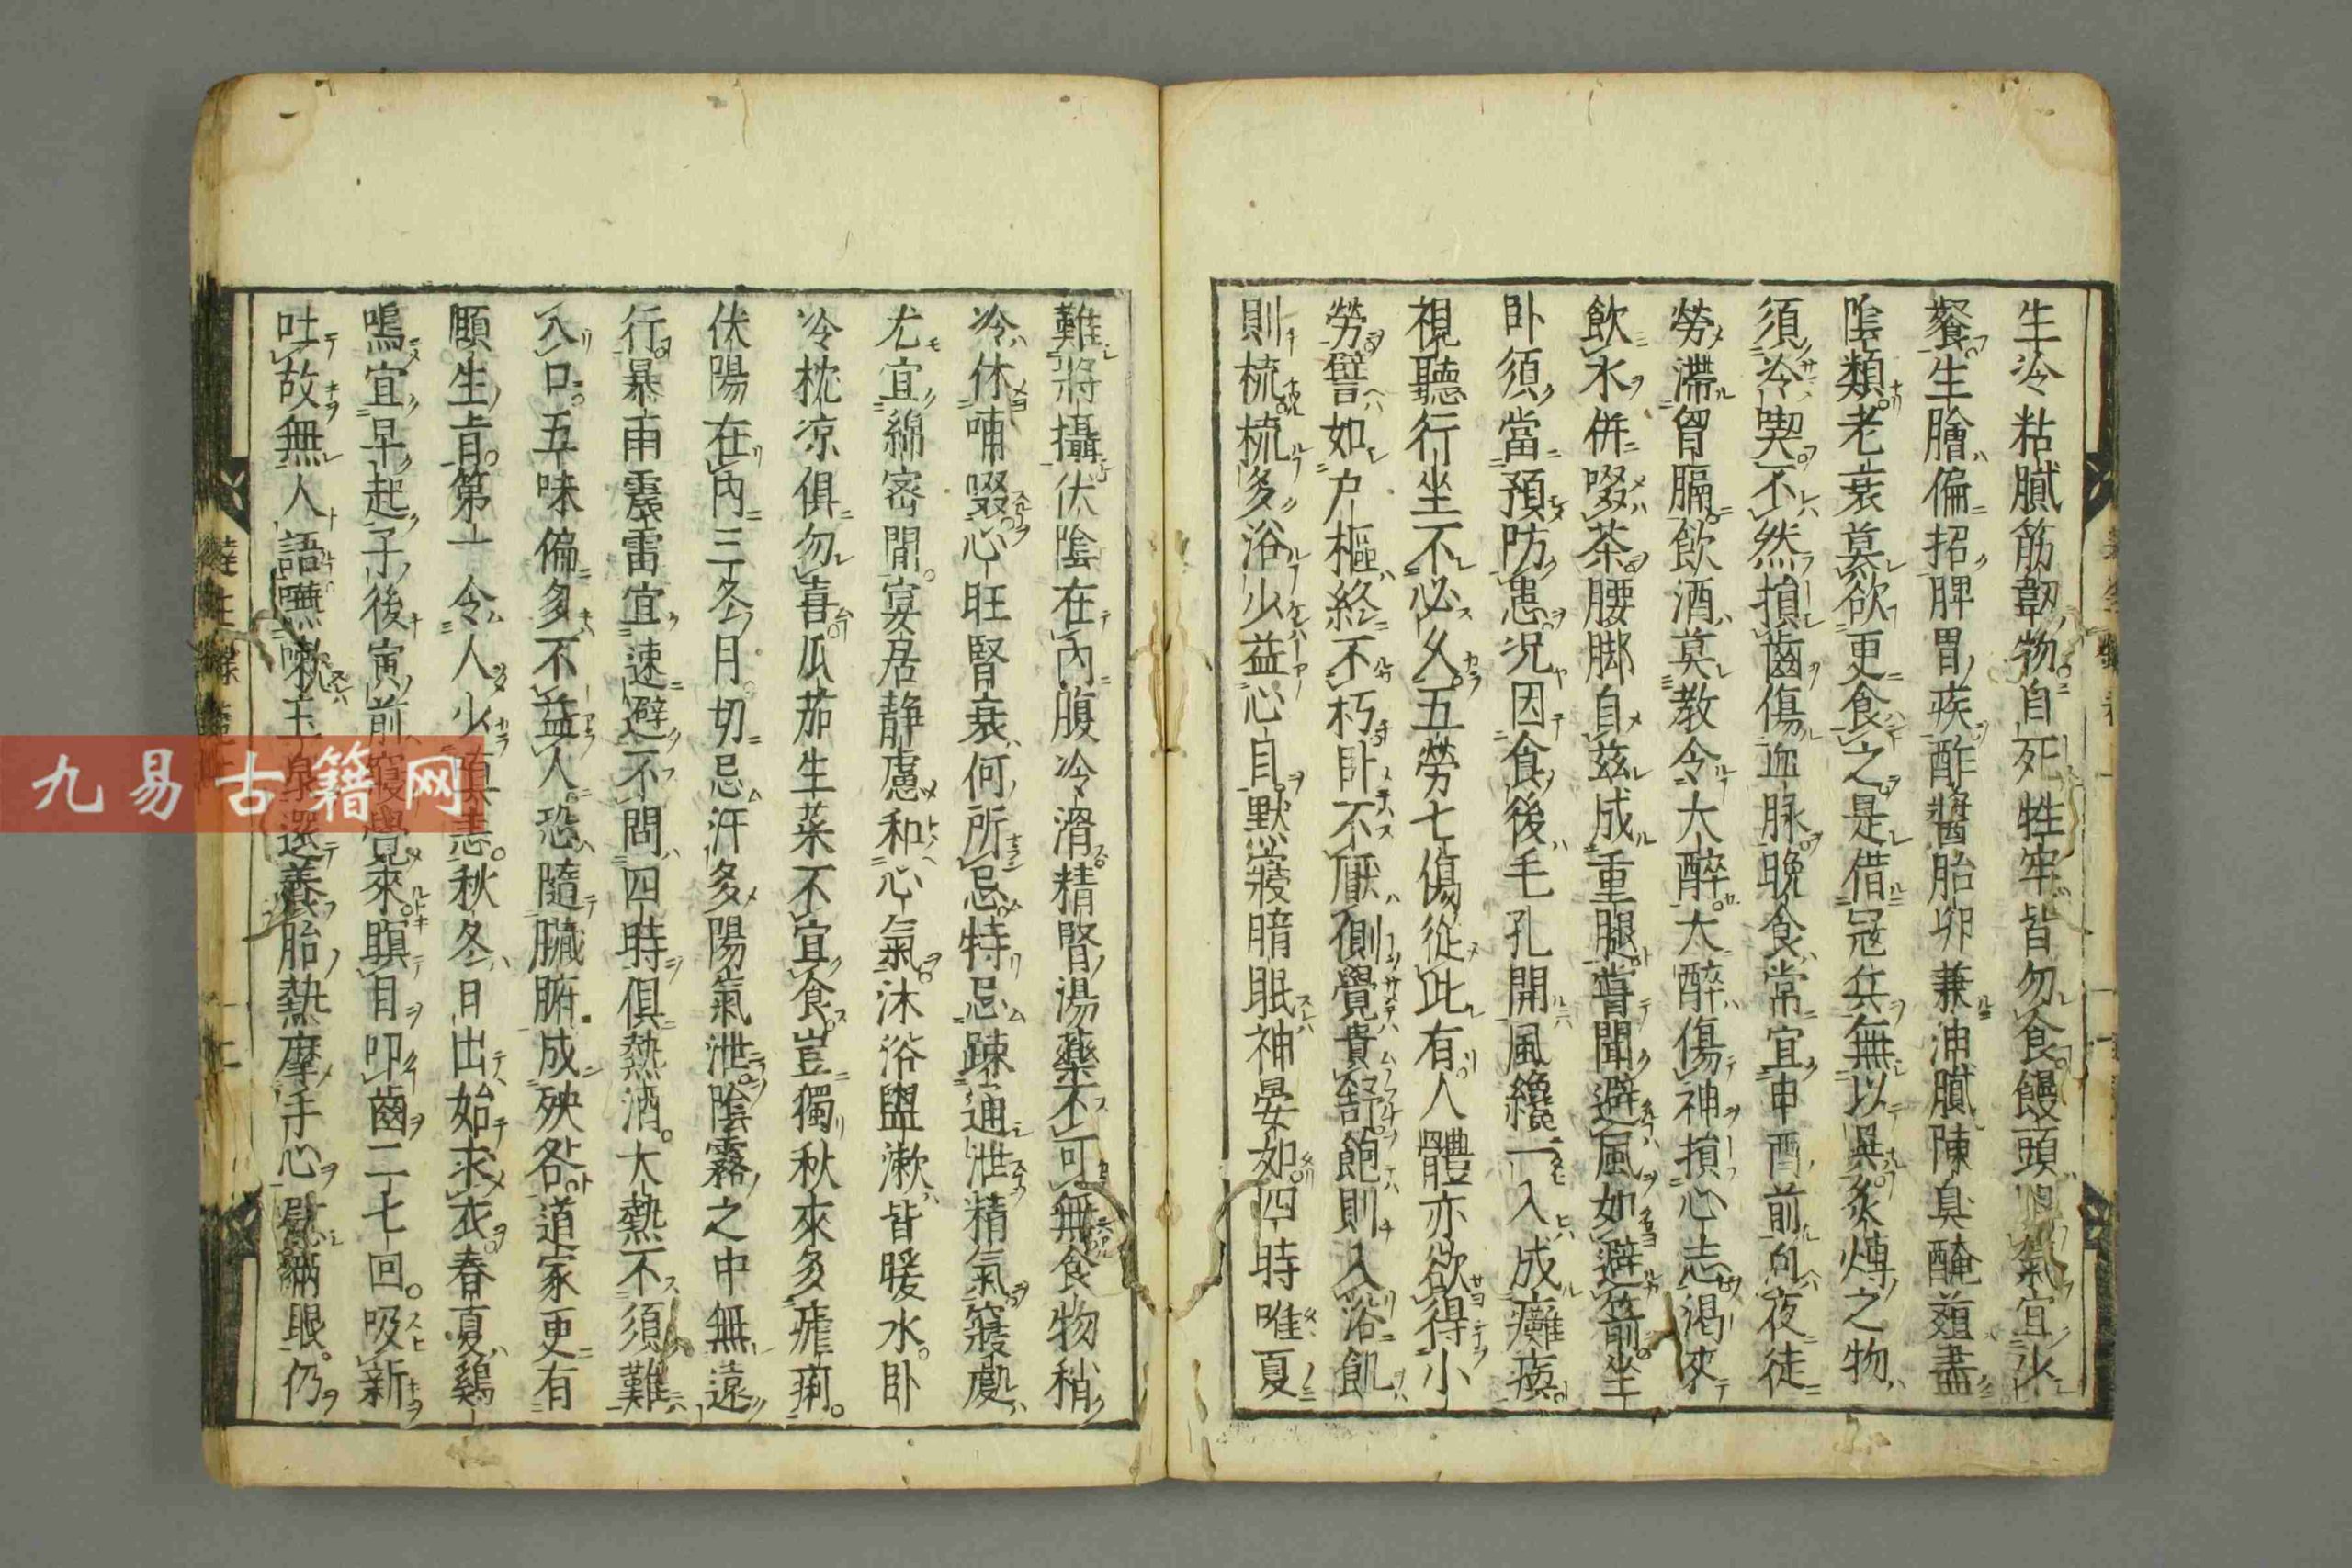 生冷粘膩筋韌物自死牲牢皆勿食饅頭氣宜少
餐生膾偏招脾胃疾酢醬胎卵兼油膩陳臭醃葅盡
陰類老衰莫欲更食之是借冦兵無以異炙煿之物
須冷喫不然損齒傷血脉晚食常宜申酉前向夜徒
勞滯胷膈飲酒莫教令大醉大醉傷神損心志渴來
飲水併啜茶腰脚自茲成重腿嘗聞避風如避箭坐
卧須當預防患況因食後毛孔開風纔一入成癱瘓
視聽行坐不必久五勞七傷從此有人體亦欲得小
勞譬如户樞終不朽卧不厭側覺貴舒飽則入浴飢
則梳梳多浴少益心目默寢暗眠神晏如四時唯夏
難將攝伏陰在內腹冷滑補腎湯藥不可無食物稍
冷休哺啜心旺腎衰何所忌特忌踈通泄精氣寢處
尤宜綿密閒宴居静慮和心氣沐浴盥漱皆暖水卧
冷枕凉俱勿喜瓜茄生菜不宜食豈獨秋來多瘧痢
伏陽在內三冬月切忌汗多陽氣泄陰霧之中無遠
行暴雨震雷宜速避不問四時俱熱酒大熱不須難
入口五味偏多不益人恐隨臟腑成殃咎道家更有
頤生旨第一令人少嗔恚秋冬日出始求衣春夏鷄
鳴宜早起子後寅前寢覺來瞑目叩齒二七回吸新
吐故無人語嚥漱玉泉還養胎熱摩手心熨兩眼仍
九易古籍网